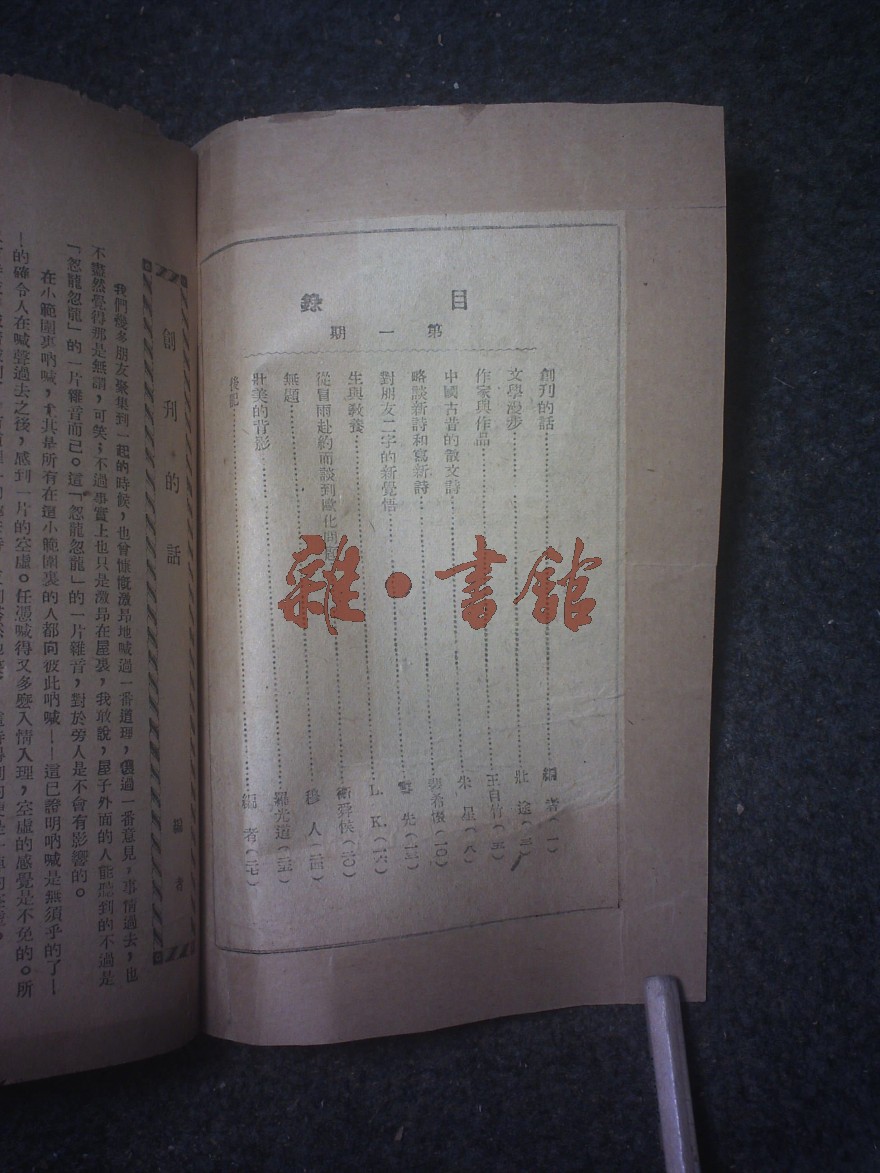 目錄
第一期
創刊的話 編者(一)
文學漫步 壯途(三)
作家與作品 王自竹(五)
中國古昔的散文詩 朱星(八)
略談新詩和寫新詩 (一〇)
對朋友二字的新覺悟 先(一三)
生與教養 L. K.(一六)
從冒雨赴約而談到歐化問題 衛舜候(二〇)
無題 人(二四)
壯美的背影 羅光道(二五)
後記 編者(二七)
雜·書館
創刊的話
編者
我們幾多朋友聚集到一起的時候,也曾慷慨激昂地喊過一番道理,鬧過一番意見,事情過去,也
不盡然覺得那是無謂,可笑;不過事實上也只是激昂在屋裏,我敢說,屋子外面的人能聽到的不過是
「忽龍忽龍」的一片雜音而已。這「忽龍忽龍」的一片雜音,對於旁人是不會有影響的。
在小範圍裏吶喊,尤其是所有在這小範圍裏的人都向彼此吶喊——這已證明吶喊是無須乎的了—
—的確令人在喊聲過去之後,感到一片的空虛。任憑喊得又多麼入情入理,空虛的感覺是不免的。所